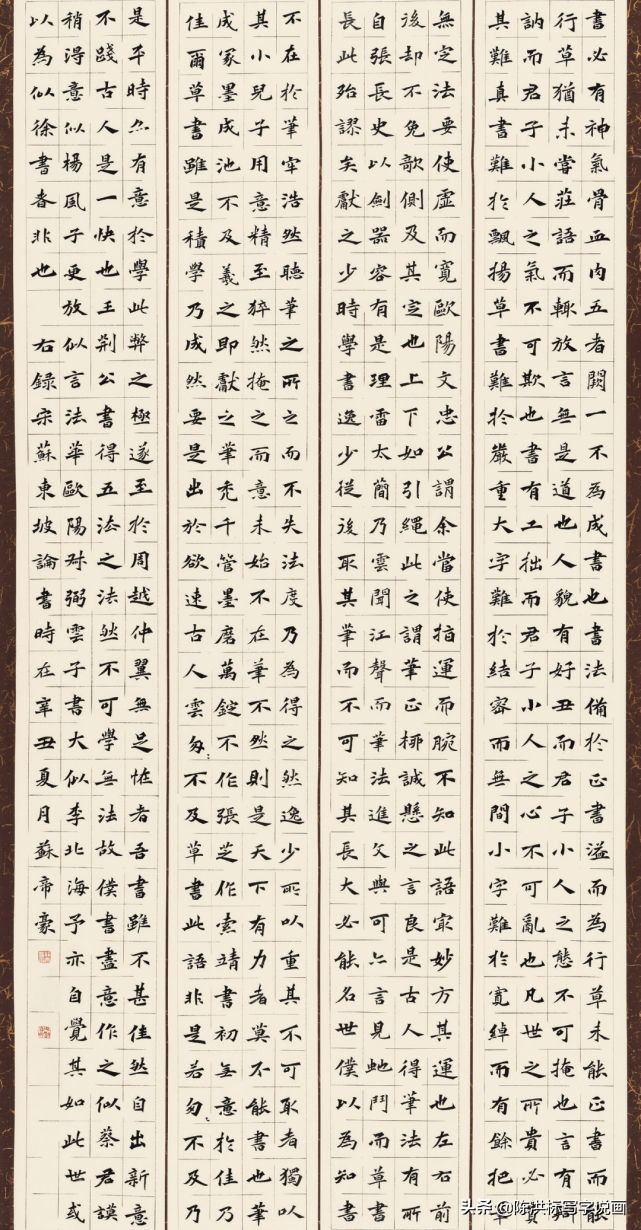 書必有神氣骨血肉五者闕一不為成書也書法備於正書溢而為行草未能正書而能
行草猶未嘗莊語而輒放言無是道也人貌有好丑而君子小人之態不可掩也言有
訥而君子小人之氣不可欺也書有工拙而君子小人之心不可亂也凡世之所貴必
其難真書難於飄揚草書難於嚴重大字難於結密而無間小字難於寬綽而有餘把
無定法要使虛而寬歐陽文忠公謂余當使指運而腕不知此語最妙方其運也左右前
後却不免欹側及其定也上下如引繩此之謂筆正柳誠懸之言良是古人得筆法有所
自張長史以劍器容有是理雷太簡乃雲聞江聲而筆法進文與可亦言見蛇鬥而草書
長此殆謬矣獻之少時學書逸少從後取其筆而不可知其長大必能名世僕以為知書
不在於筆牢浩然聽筆之所之而不失法度乃為得之然逸少所以重其不可取者獨以
其小兒子用意精至猝然掩之而意未始不在筆不然則是天下有力者莫不能書也筆
成冢墨成池不及羲之即獻之筆禿千管墨磨萬錠不作張芝作索靖書初無意於佳乃
佳爾草書雖是積學乃成然要是出於欲速古人雲匆々不及草書此語非是若匆々不及乃
是平時亦有意於學此弊之極遂至於周越仲翼無足怪者吾書雖不甚佳然自出新意
不踐古人是一快也王荊公書得五法之法然不可學無法故僕書盡意作之似蔡君謨
稍得意似楊風子更放似言法華歐陽叔弼雲子書大似李北海予亦自覺其如此世或
以為似徐書者非也 右錄宋蘇東坡論書時在辛丑夏月蘇帝豪
头条 @陈洪标写字说画